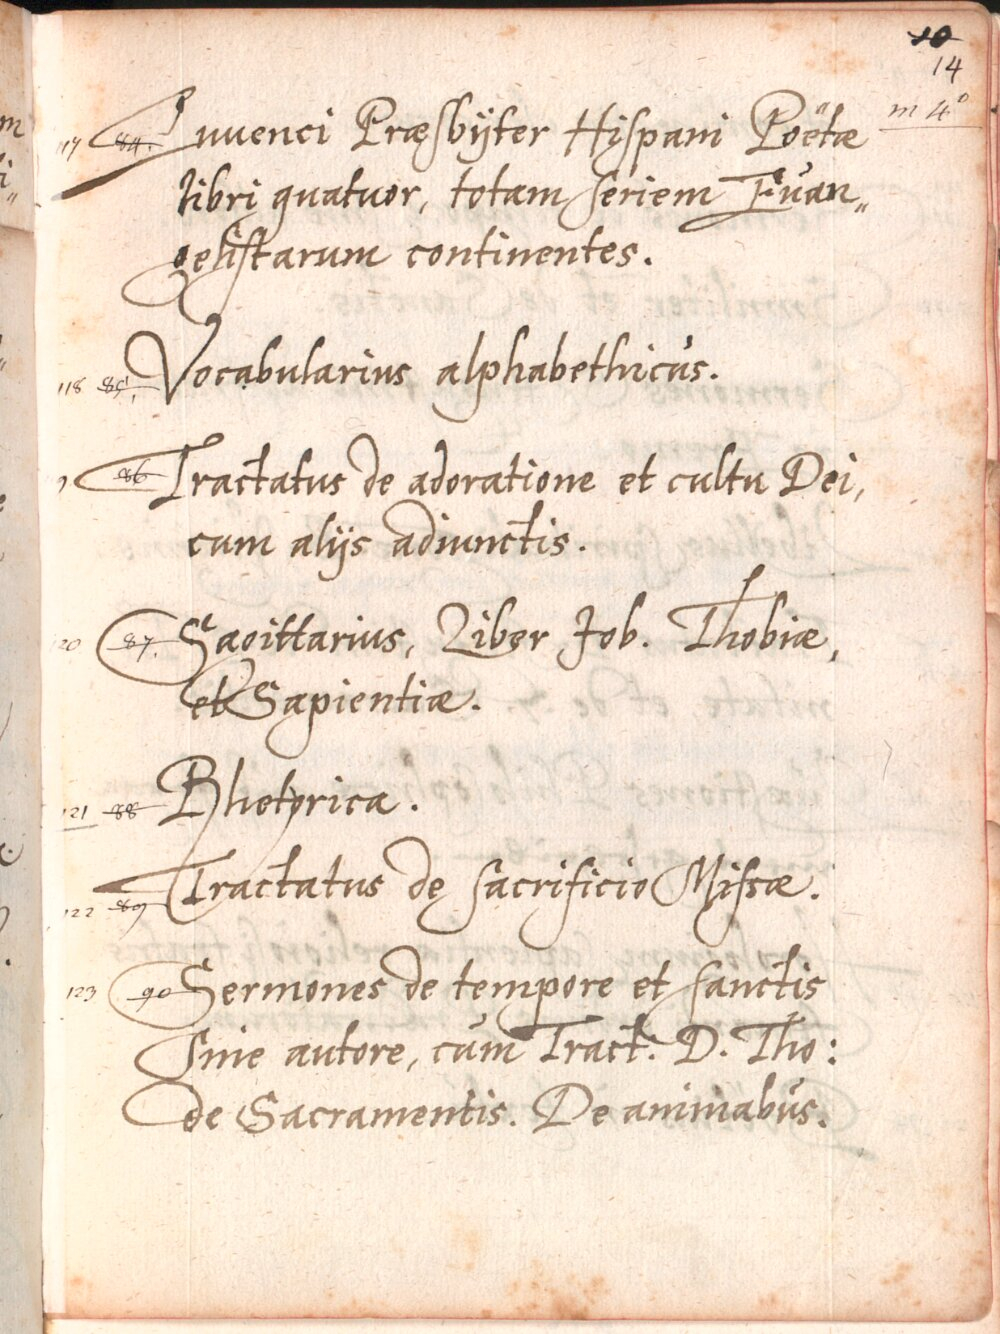 10
14
in 4°
117 84. Iuuenci Præsbÿter Hispani Poëtæ
libri quatuor, totam seriem Euan„
gelistarum continentes.
118 85. Vocabularius alphabethicus.
86 Tractatus de adoratione et cultu Dei,
cum alijs adiunctis.
120 87. Sagittarius, Liber Job. Thobiæ,
et Sapientiæ.
121 88 Rhetorica.
122 89 Tractatus de sacrificio Missæ.
123 90 Sermones de tempore et sanctis
sine autore, cum Tract. D. Tho:
de Sacramentis. De animabus.